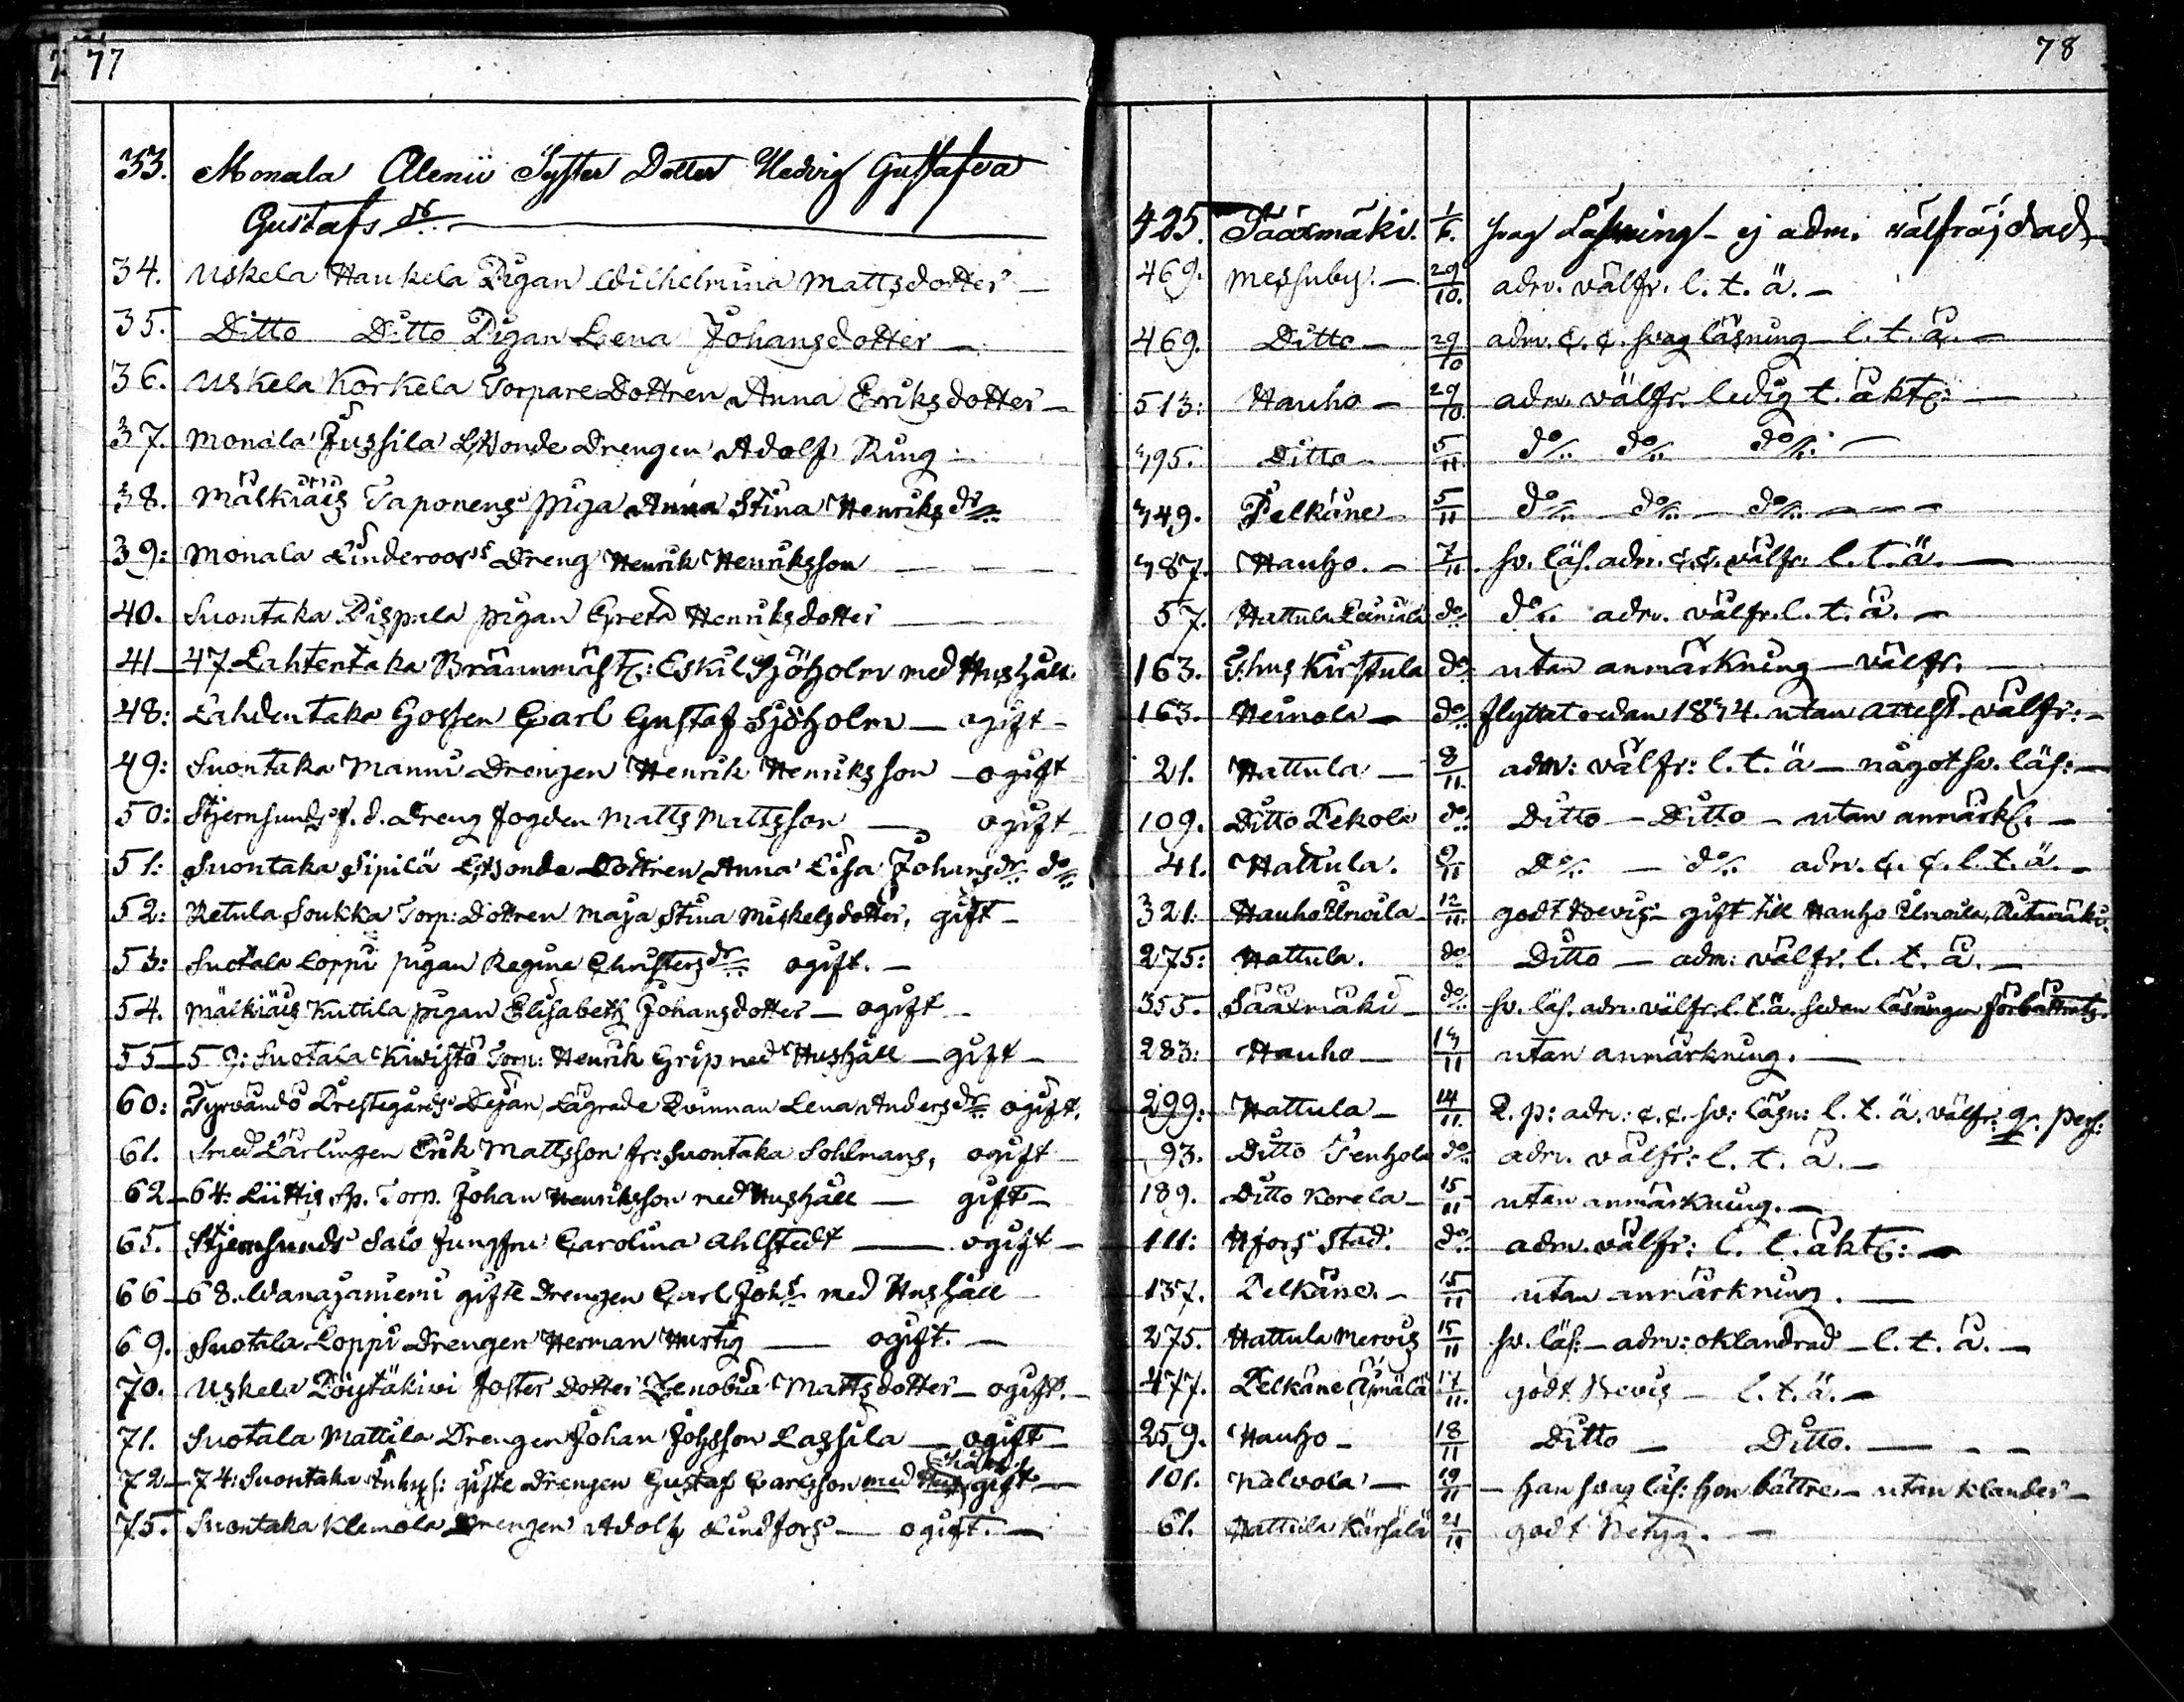 77
33. Monala Alenii Syster Dotter Hedvig Gustafva
Gustafs dr
34. Uskela Haukela Pigan Wilhelmina Mattsdotter —
35. Ditto Ditto Pigan Lena Johansdotter —
36. Uskela Korkela Torpare Dottren Anna Eriksdotter —
37. Monala Jussila Drengen Adolf Ring —
38. Mälkiäis Taponens piga Anna Stina Henriks dr
39: Monala Linderoos's Dreng Henrik Henriksson — — —
40. Suontaka Pispala pigan Greta Henriksdotter — —
41—47. Lahtentaka Brännmäst: Eskil Sjöholm med Hushåll.
48: Lahdentaka Gossen Carl Gustaf Sjöholm — ogift —
49: Suontaka Manni Drengen Henrik Henriksson — ogift
50: Stjernsunds f. d. Dreng Fogden Matts Mattsson — ogift —
51: Suontaka Sipilä Dottren Anna Lisa Johans dr do
52: Retula Soukka Torp: Dottren Maja Stina Mickelsdotter, gift —
53: Suotala Loppi pigan Regina Christers dr ogift. —
54. Mälkiäis Kuttila pigan Elisabeth Johansdotter — ogift —
55—59: Suotala Kiwistö Torp: Henrik Grip med Hushåll — gift —
60: Tyrvändö Prestegårds Dejan, Lägrade Qvinnan Lena Anders dr ogift.
61. Smed Lärlingen Erik Mattsson fr: Suontaka Sohlmans, ogift —
62—64: Liittis Sp. Torp. Johan Henriksson med Hushåll — gift —
65. Stjernsunds Salo Jungfru Carolina Ahlstedt — ogift —
66—68. Wanajaniemi gifte Drengen Carl Johs med Hushåll —
69. Suotala Loppi Drengen Herman Hurtig — ogift. —
70. Uskela Pöystäkiwi Foster Dotter Zenobia Mattsdotter — ogift. —
71. Suotala Mattila Drengen Johan Johsson Lassila — ogift —
72—74: Suontaka gifte Drengen Gustaf Carlsson med gift —
75. Suontaka Klemola Drengen Adolf Lindfors — ogift. —
78
425. Sääxmäki. svag Läsning — ej adm. välfräjdad
469. Messuby. — 29/10. adm. välfr. l. t. ä. —
469. Ditto — 29/10 adm. c. c. svag läsning — l. t. ä. —
513: Hauho — 29/10. adm. välfr. ledig t. äkt: —
395. Ditto 5/11. do do do —
349. Pelkäne 5/11 do do do — — —
387. Hauho. — 7/11 sv. läs. adm. c. c. välfr: l. t. ä. —
57. Hattula do do. adm. välfr. l. t. ä. —
163. Thus Kirstula do utan anmärkning — välfr. —
163. Heinola — do flyttat redan 1834. utan attest. välfr: —
21. Hattula — 8/11. adm: välfr: l. t. ä — något sv. läs: —
109. Ditto Pekola do Ditto — Ditto — utan anmärk. —
41. Hattula. 9/11 Do — do adm. c. c. l. t. ä. —
321: Hauho 12/11. godt bevis — gift till Hauho
275: Hattula. do Ditto — adm: välfr. l. t. ä. —
355. Sääxmäki do sv. läs. adm. välfr. l. t. ä. sedan läsningen förbättrats.
283: Hauho — 13/11 utan anmärkning. —
299: Hattula — 14/11. Q. p: adm: c. c. sv: läsn: l. t. ä. välfr:
93. Ditto Tenhola do adm. välfr: l. t. ä. —
189. Ditto Korela — 15/11 utan anmärkning. —
111: Hfors Stad. do adm. välfr: l. t. äkt: —
137. Pelkäne. — 15/11 utan anmärkning. —
275. Hattula Mervis 15/11 sv. läs: — adm: oklandrad — l. t. ä. —
477. Pelkäne Äimälä 17/11. godt Bevis — l. t. ä. —
259. Hauho — 18/11 Ditto — Ditto. — — —
101. Kalvola — 19/11 — han svag läs: hon bättre — utan klander —
61. Hattula 21/11 godt Betyg. —